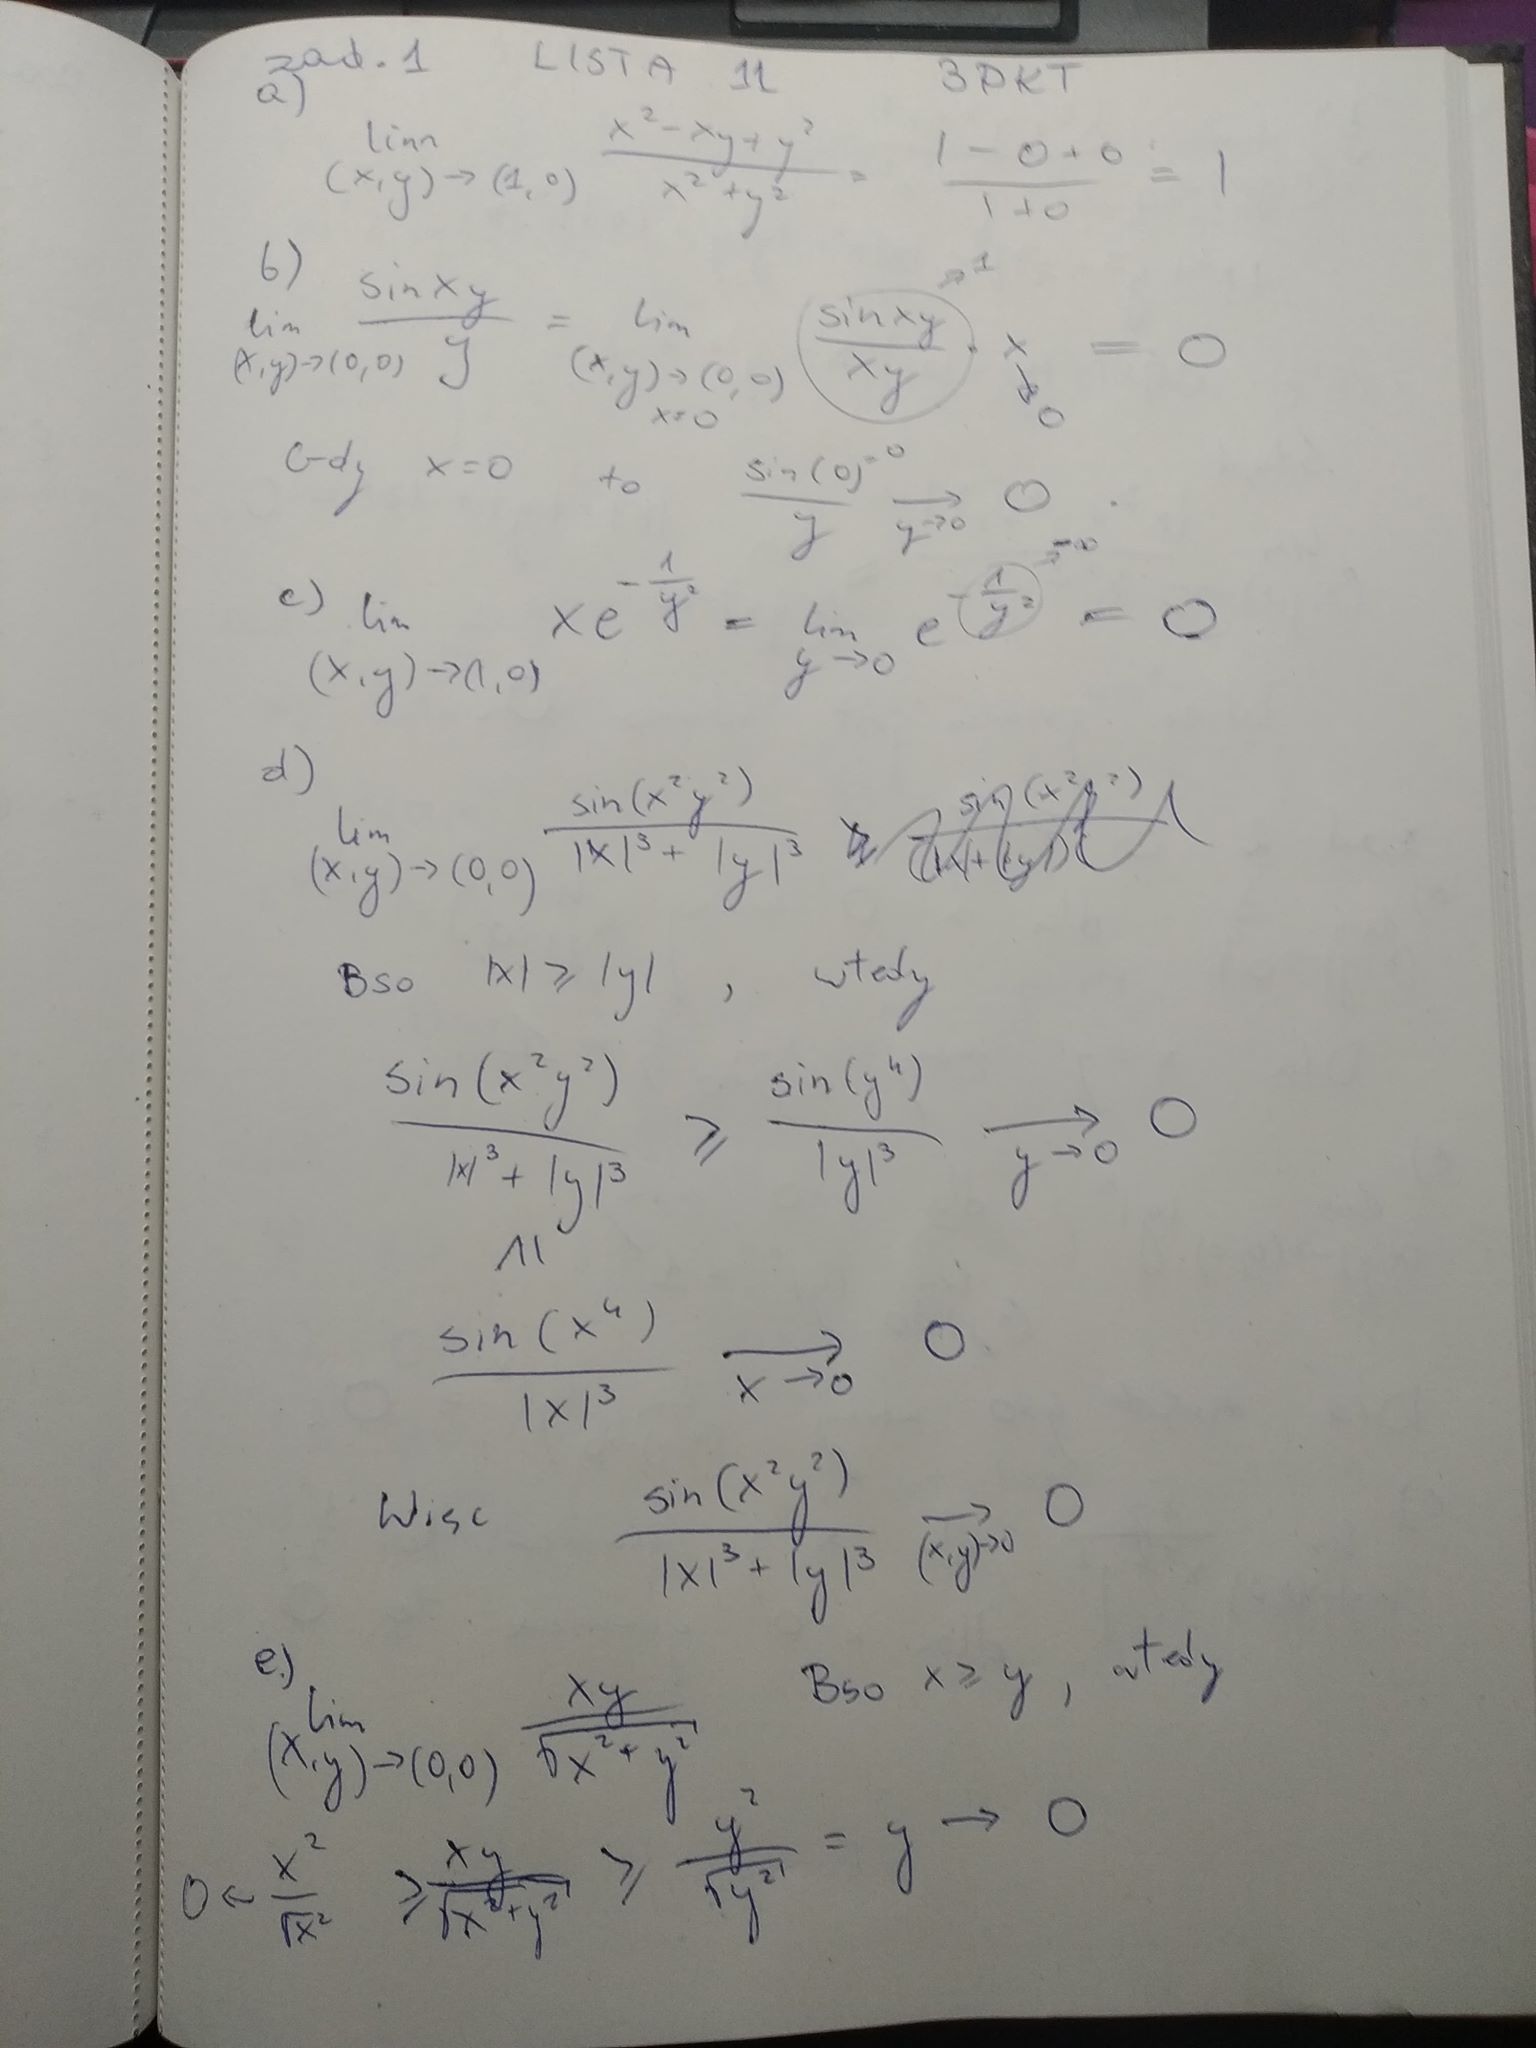 zad. 1 LISTA 11 3PKT
a)
lim (x,y)→(1,0) (x²-xy+y²)/(x²+y²) = (1-0+0)/(1+0) = 1
b)
lim (x,y)→(0,0) sinxy/y = lim (x,y)→(0,0) x=0 (sinxy/xy)→1 · x→0 = 0
Gdy x=0 to sin(0)=0/y →y→0 0.
c) lim (x,y)→(1,0) xe^(-1/y²) = lim y→0 e^(-1/y²)→-∞ = 0
d)
lim (x,y)→(0,0) sin(x²y²)/(|x|³+|y|³)
Bso |x| ≥ |y|, wtedy
sin(x²y²)/(|x|³+|y|³) ≥ sin(y⁴)/|y|³ →y→0 0
≤
sin(x⁴)/|x|³ →x→0 0
Więc sin(x²y²)/(|x|³+|y|³) →(x,y)→0 0
e.)
lim (x,y)→(0,0) xy/√(x²+y²) Bso x≥y, wtedy
0 ← x²/√x² ≥ xy/√(x²+y²) ≥ y²/√y² = y → 0